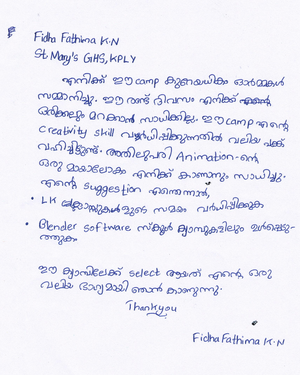 Fidha Fathima K.N
St. Mary's GHS, KPLY
എനിക്ക് ഈ camp കുറേയധികം ഓർമ്മകൾ
സമ്മാനിച്ചു. ഈ രണ്ട് ദിവസം എനിക്ക് എന്റെ
ഒരിക്കലും മറക്കാൻ സാധിക്കില്ല. ഈ camp എന്റെ
Creativity skill വർധിപ്പിക്കുന്നതിൽ വലിയ പങ്ക്
വഹിച്ചിട്ടുണ്ട്. അതിലുപരി Animation-ന്റെ
ഒരു മായാലോകം എനിക്ക് കാണാനും സാധിച്ചു.
എന്റെ suggestion എന്തെന്നാൽ,
• LK ക്ലാസുകളുടെ സമയം വർധിപ്പിക്കുക
• Blender software സ്കൂൾ ക്യാമ്പുകളിലും ഉൾപ്പെടു-
ത്തുക
ഈ ക്യാമ്പിലേക്ക് select ആയത് എന്റെ ഒരു
വലിയ ഭാഗ്യമായി ഞാൻ കാണുന്നു.
Thankyou
Fidha Fathima K.N